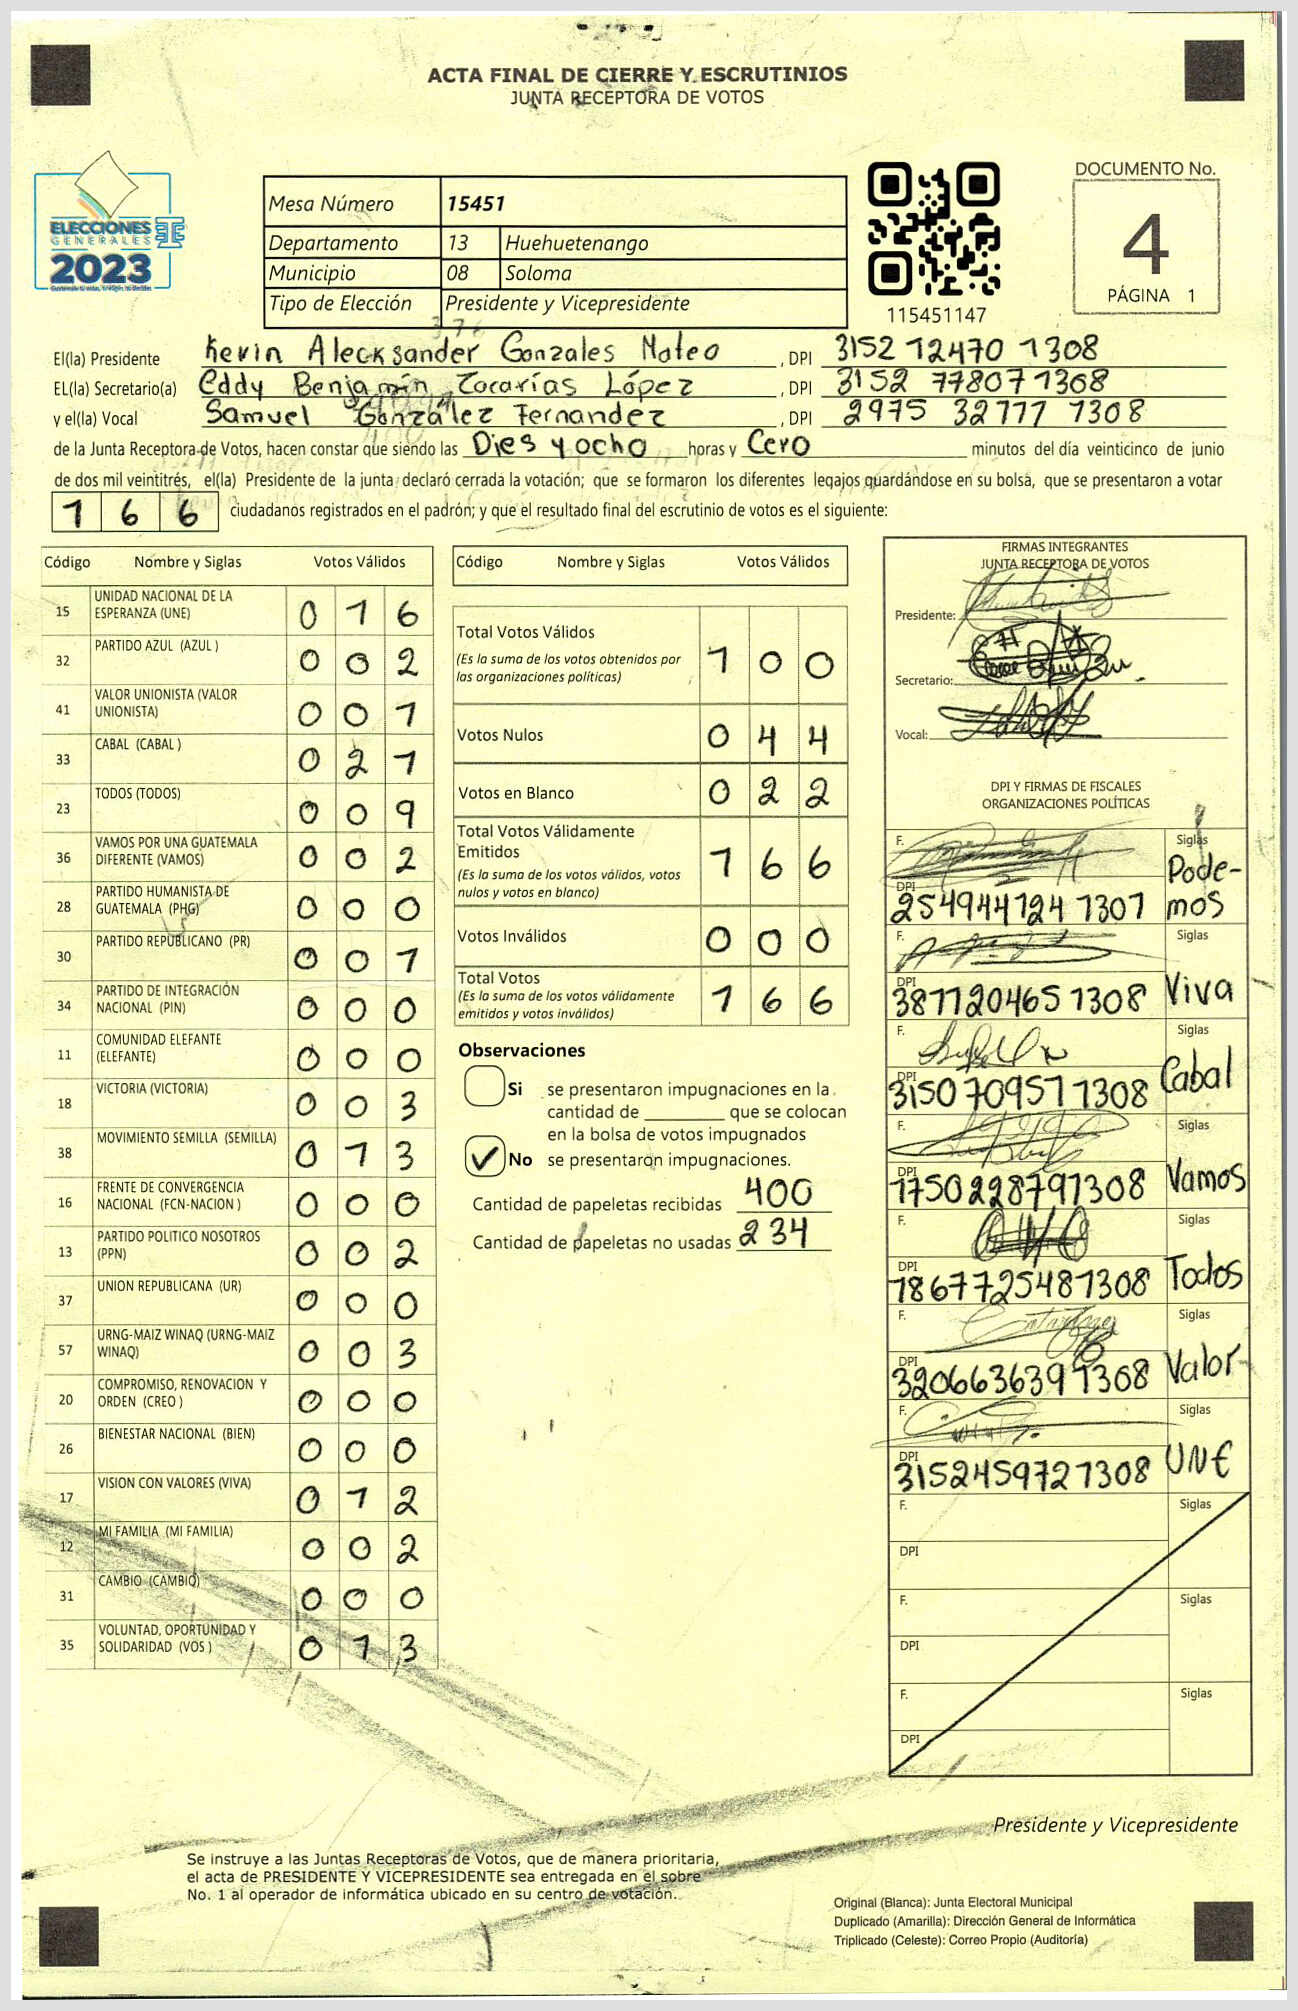 ACTA FINAL DE CIERRE Y ESCRUTINIOS
JUNTA RECEPTORA DE VOTOS
ELECCIONES
GENERALES
2023
Mesa Número 15451
Departamento 13 Huehuetenango
Municipio 08 Soloma
Tipo de Elección Presidente y Vicepresidente
115451147
DOCUMENTO No.
4
PÁGINA 1
El(la) Presidente Kevin Alecksander Gonzales Mateo , DPI 3152 12470 1308
EL(la) Secretario(a) Eddy Benjamín Zacarías López , DPI 3152 77807 1308
y el(la) Vocal Samuel González Fernandez , DPI 2975 32777 1308
de la Junta Receptora de Votos, hacen constar que siendo las Dies y ocho horas y Cero minutos del día veinticinco de junio
de dos mil veintitrés, el(la) Presidente de la junta declaró cerrada la votación; que se formaron los diferentes legajos guardándose en su bolsa, que se presentaron a votar
166 ciudadanos registrados en el padrón; y que el resultado final del escrutinio de votos es el siguiente:
Código Nombre y Siglas Votos Válidos
15 UNIDAD NACIONAL DE LA ESPERANZA (UNE) 016
32 PARTIDO AZUL (AZUL ) 002
41 VALOR UNIONISTA (VALOR UNIONISTA) 001
33 CABAL (CABAL ) 021
23 TODOS (TODOS) 009
36 VAMOS POR UNA GUATEMALA DIFERENTE (VAMOS) 002
28 PARTIDO HUMANISTA DE GUATEMALA (PHG) 000
30 PARTIDO REPUBLICANO (PR) 001
34 PARTIDO DE INTEGRACIÓN NACIONAL (PIN) 000
11 COMUNIDAD ELEFANTE (ELEFANTE) 000
18 VICTORIA (VICTORIA) 003
38 MOVIMIENTO SEMILLA (SEMILLA) 013
16 FRENTE DE CONVERGENCIA NACIONAL (FCN-NACION ) 000
13 PARTIDO POLITICO NOSOTROS (PPN) 002
37 UNION REPUBLICANA (UR) 000
57 URNG-MAIZ WINAQ (URNG-MAIZ WINAQ) 003
20 COMPROMISO, RENOVACION Y ORDEN (CREO ) 000
26 BIENESTAR NACIONAL (BIEN) 000
17 VISION CON VALORES (VIVA) 012
12 MI FAMILIA (MI FAMILIA) 002
31 CAMBIO (CAMBIO) 000
35 VOLUNTAD, OPORTUNIDAD Y SOLIDARIDAD (VOS ) 013
Código Nombre y Siglas Votos Válidos
Total Votos Válidos 100
(Es la suma de los votos obtenidos por
las organizaciones políticas)
Votos Nulos 044
Votos en Blanco 022
Total Votos Válidamente
Emitidos 166
(Es la suma de los votos válidos, votos
nulos y votos en blanco)
Votos Inválidos 000
Total Votos 166
(Es la suma de los votos válidamente
emitidos y votos inválidos)
Observaciones
Si se presentaron impugnaciones en la
cantidad de ________ que se colocan
en la bolsa de votos impugnados
No se presentaron impugnaciones.
Cantidad de papeletas recibidas 400
Cantidad de papeletas no usadas 234
FIRMAS INTEGRANTES
JUNTA RECEPTORA DE VOTOS
Presidente:
Secretario:
Vocal:
DPI Y FIRMAS DE FISCALES
ORGANIZACIONES POLÍTICAS
F. Siglas Podemos
DPI 254944124 1307
F. Siglas Viva
DPI 387120465 1308
F. Siglas Cabal
DPI 315070957 1308
F. Siglas Vamos
DPI 175022879 1308
F. Siglas Todos
DPI 186772548 1308
F. Siglas Valor
DPI 320663639 1308
F. Siglas UNE
DPI 315245972 1308
F. Siglas
DPI
F. Siglas
DPI
F. Siglas
DPI
Presidente y Vicepresidente
Se instruye a las Juntas Receptoras de Votos, que de manera prioritaria,
el acta de PRESIDENTE Y VICEPRESIDENTE sea entregada en el sobre
No. 1 al operador de informática ubicado en su centro de votación.
Original (Blanca): Junta Electoral Municipal
Duplicado (Amarilla): Dirección General de Informática
Triplicado (Celeste): Correo Propio (Auditoría)